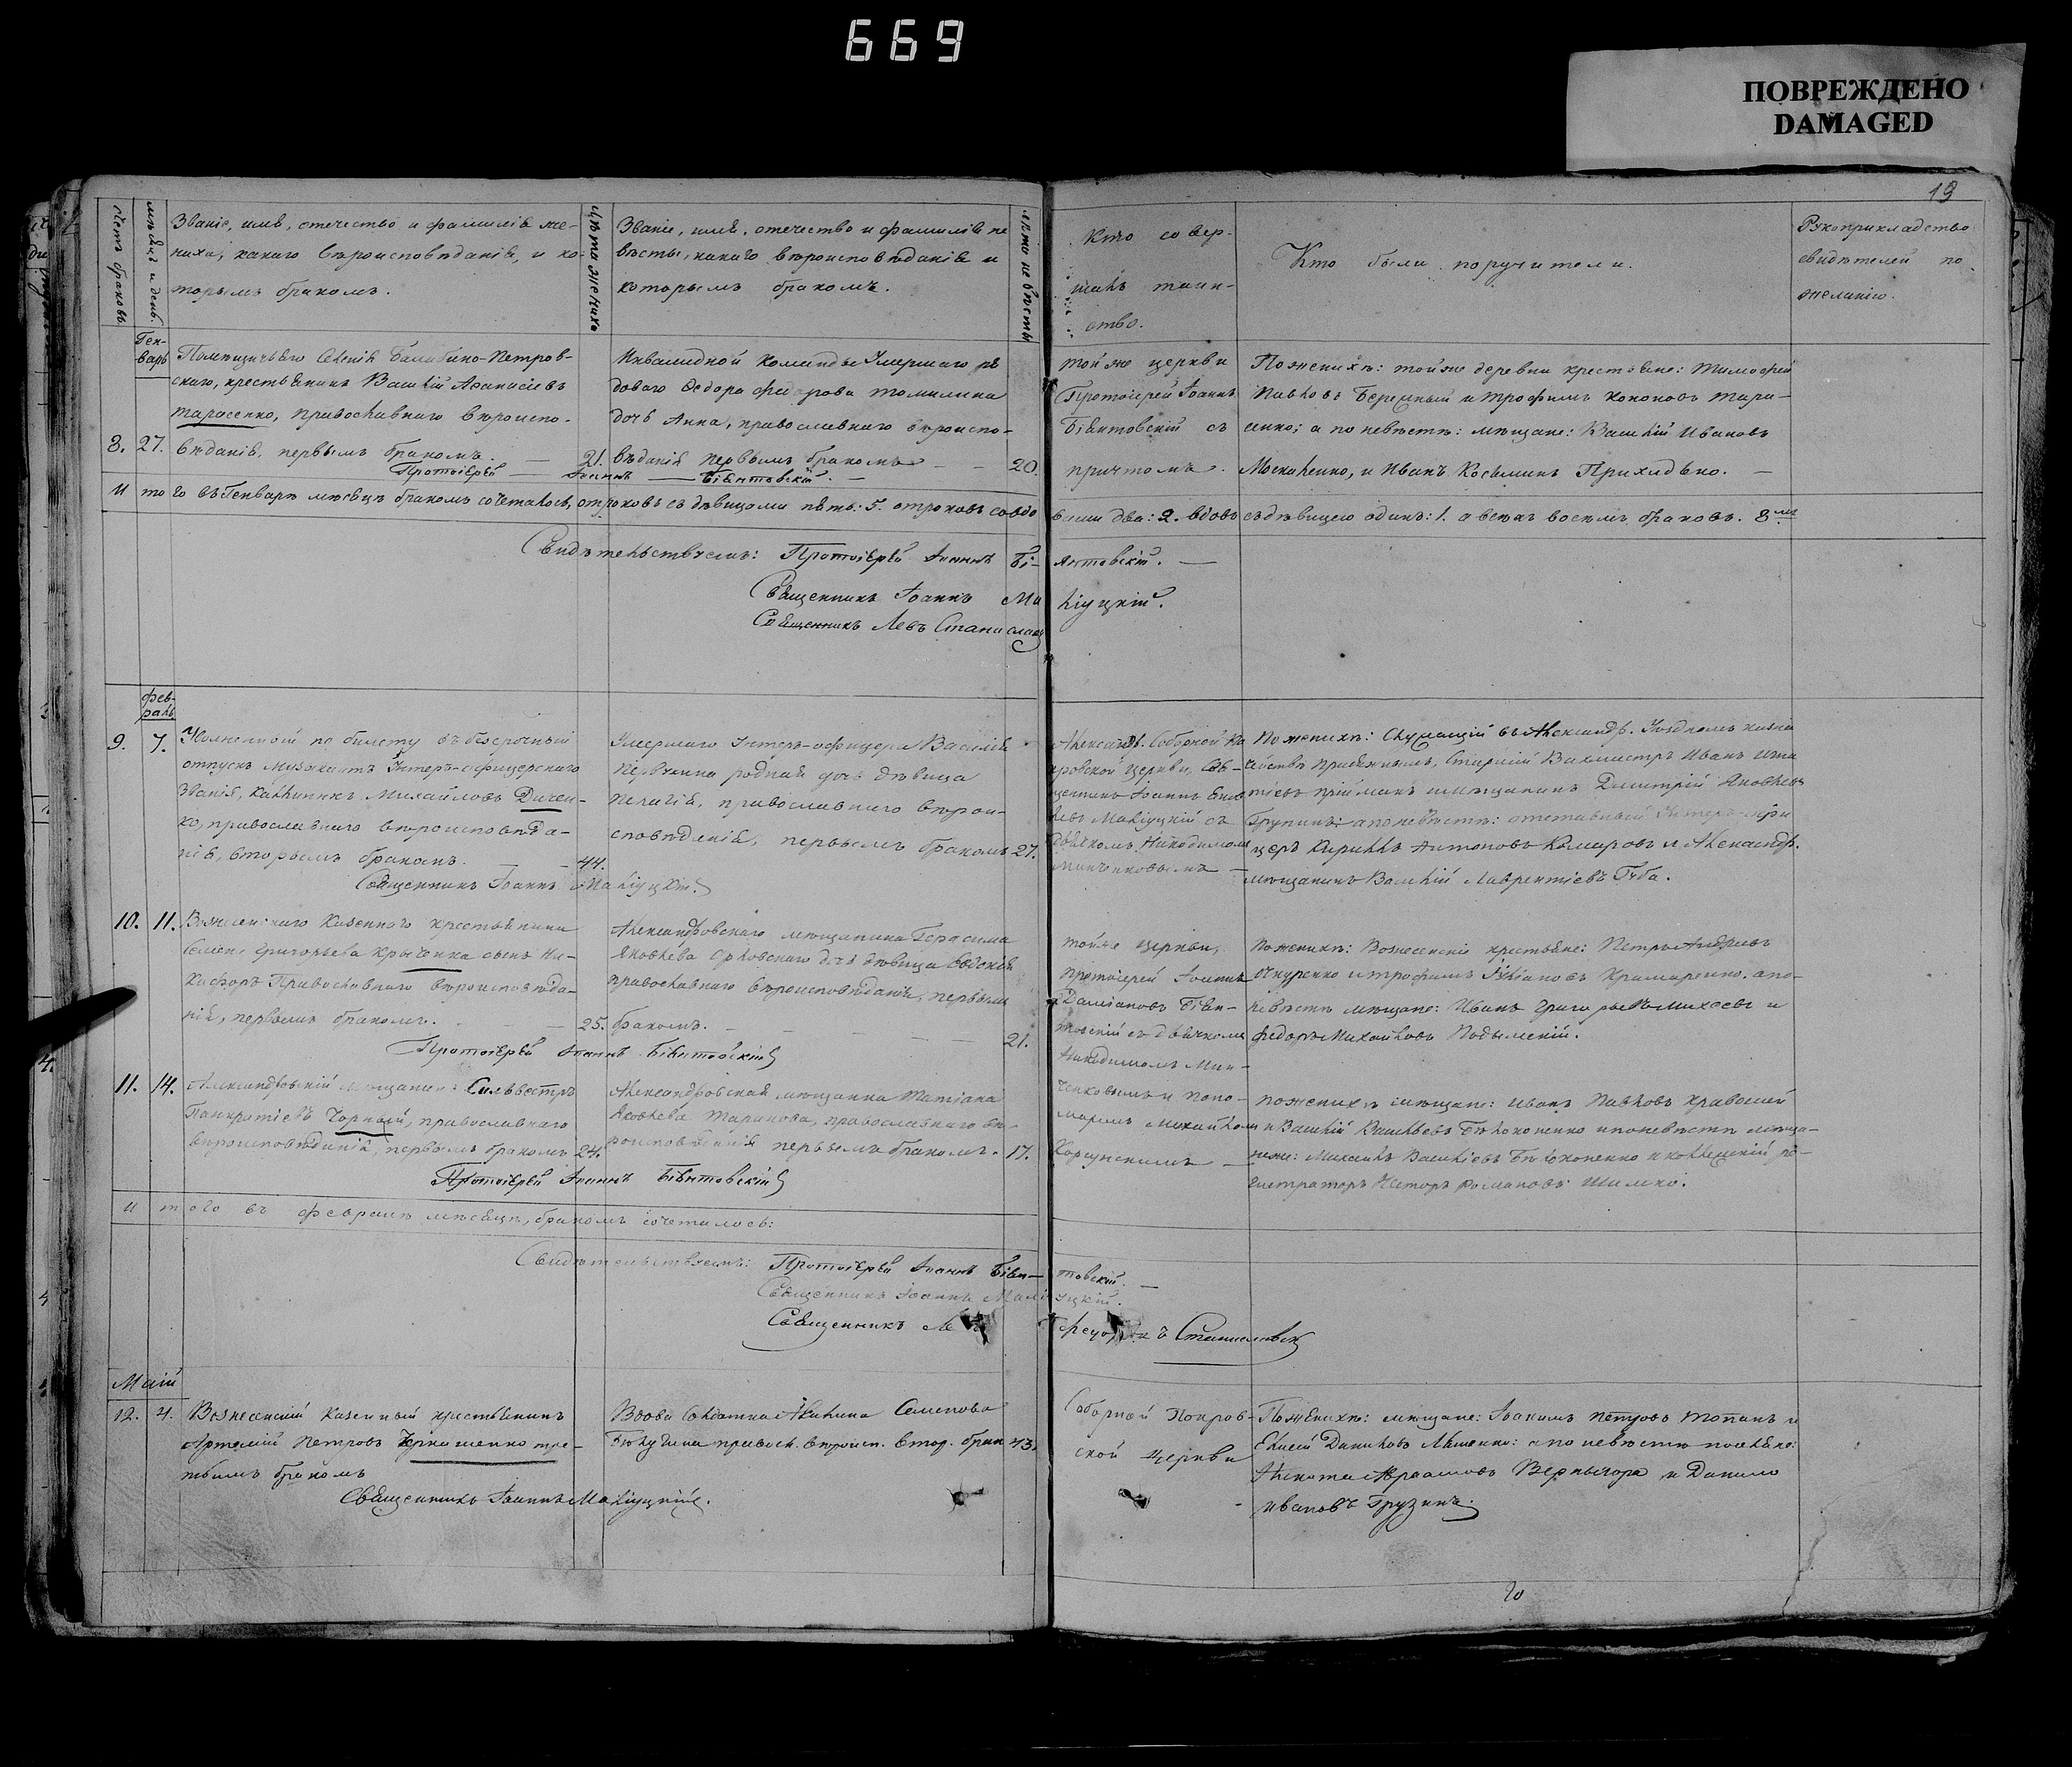 669
ПОВРЕЖДЕНО
DAMAGED
19
счетъ браковъ
мѣсяцъ и день.
Званіе, имя, отечество и фамилія же-
ниха, какаго вѣроисповѣданія, и ко-
торымъ бракомъ.
лѣта жениха
Званіе, имя, отечество и фамилія не
вѣсты, какаго вѣроисповѣданія и
которымъ бракомъ.
лѣта невѣсты
Кто совер-
шалъ таин-
ство.
Кто были поручители.
Рукоприкладство
свидѣтелей по
желанію.
Ген-
варь
8. 27.
Помѣщичьяго Селенія Балабино-Петров-
скаго, крестьянинъ Василій Афанасіевъ
Тарасенко, православнаго вѣроиспо-
вѣданія, первымъ бракомъ. — 21.
Инвалидной команды Умершаго ря
доваго Федора Федорова Томилина
дочь Анна, православнаго вѣроиспо-
вѣданія первымъ бракомъ — — 20.
Протоіерей Іоаннъ Біянтовскій. —
той же церкви
Протоіерей Іоаннъ
Біянтовскій съ
причтомъ.
По женихѣ: той же деревни крестьяне: Тимофей
Павловъ Бережный и Трофимъ Кононовъ Тара-
сенко; а по невѣстѣ: мѣщане: Василій Ивановъ
Москаленко, и Иванъ Косьминъ Прихидько. —
Итого въ Генварѣ мѣсяцѣ бракомъ сочеталось, отроковъ съ дѣвицами пять: 5. отроковъ со вдо
вами два: 2. вдовъ съ дѣвицею одинъ: 1. а всѣхъ восемь браковъ. 8мь
Свидѣтельствуемъ: Протоіерей Іоаннъ Бі-
янтовскій. —
Священникъ Іоаннъ Ма
ліуцкій.
Священникъ Левъ Станиславск
Фев-
раль
9. 7.
Уволенный по билету въ безсрочный
отпускъ музыкантъ Унтеръ-офицерскаго
званія, Каллиникъ Михайловъ Дичен-
ко, православнаго вѣроисповѣда-
нія, вторымъ бракомъ. — — 44.
Умершаго Унтеръ-офицера Василія
Первухина родная дочь дѣвица
Пелагія, православнаго вѣрои-
сповѣданія, первымъ бракомъ 27.
Священникъ Іоаннъ Маліуцкій.
Александ. Соборной По
кровской Церкви, Свя-
щенникъ Іоаннъ
Маліуцкій съ
дьячкомъ Никодимомъ
По женихѣ: Служащій въ Александ. Уѣздномъ казна
чействѣ присяжнымъ, Старшій Вахмистръ Иванъ Игна
тіевъ Прійманъ и мѣщанинъ Димитрій Яковлевъ
Грунинъ: а по невѣстѣ: отставный Унтеръ-офи
церъ Кириллъ Антоновъ Комаровъ и Александ.
мѣщанинъ Василій Лаврентіевъ Губа.
10. 11.
Вознесенскаго Казеннаго крестьянина
Семена Григорьева Крыченка сынъ Ни-
кифоръ Православнаго вѣроисповѣда-
нія, первымъ бракомъ. — 25.
Александровскаго мѣщанина Герасима
Яковлева Орловскаго дочь дѣвица Евдокія
православнаго вѣроисповѣданія, первымъ
бракомъ. — — — 21.
Протоіерей Іоаннъ Біянтовскій
той же Церкви,
Протоіерей Іоаннъ
Даміановъ Біян-
товскій съ дьячкомъ
Никодимомъ Мин-
ченковымъ и поно-
маремъ Михайломъ
Корсунскимъ —
по женихѣ: Вознесенскіе крестьяне: Петръ Андреевъ
и Трофимъ Крамаренко. а по-
невѣстѣ мѣщане: Иванъ Григорьевъ Михеевъ и
Федоръ Михайловъ Подымскій.
11. 14.
Александровскій мѣщанинъ: Сильвестръ
Панкратіевъ Чорный, православнаго
вѣроисповѣданія, первымъ бракомъ 24.
Александровская мѣщанка Татіана
Яковлева Таранова, православнаго вѣ-
роисповѣданія первымъ бракомъ. 17.
Протоіерей Іоаннъ Біянтовскій
по женихѣ мѣщане: Иванъ Павловъ Кравошей
и Василій Васильевъ Бѣлоконенко и по невѣстѣ мѣща-
нинъ: Михаилъ Васильевъ Бѣлоконенко и коллежскій ре-
гистраторъ Несторъ Романовъ Шимко.
Итого въ Февралѣ мѣсяцѣ, бракомъ сочеталось:
Свидѣтельствуемъ: Протоіерей Іоаннъ Біян-
товскій. —
Священникъ Іоаннъ Малі
уцкій.
Священникъ
Станиславск
Маій
12. 4.
Вознесенскій казенный крестьянинъ
Артемій Петровъ Черкашенко тре-
тьимъ бракомъ
Вдова Солдатка Акилина Семенова
Бѣлудина правосл. вѣроисп. втор. брак 43.
Священникъ Іоаннъ Маліуцкій.
Соборной Покров-
ской Церкви
По женихѣ: мѣщане: Іоакимъ Петровъ Топанъ и
Елисей Даниловъ Ляшенко: а по невѣстѣ поселяне:
Никита Авраамовъ Вернигора и Данило
Ивановъ Грузинъ.
20